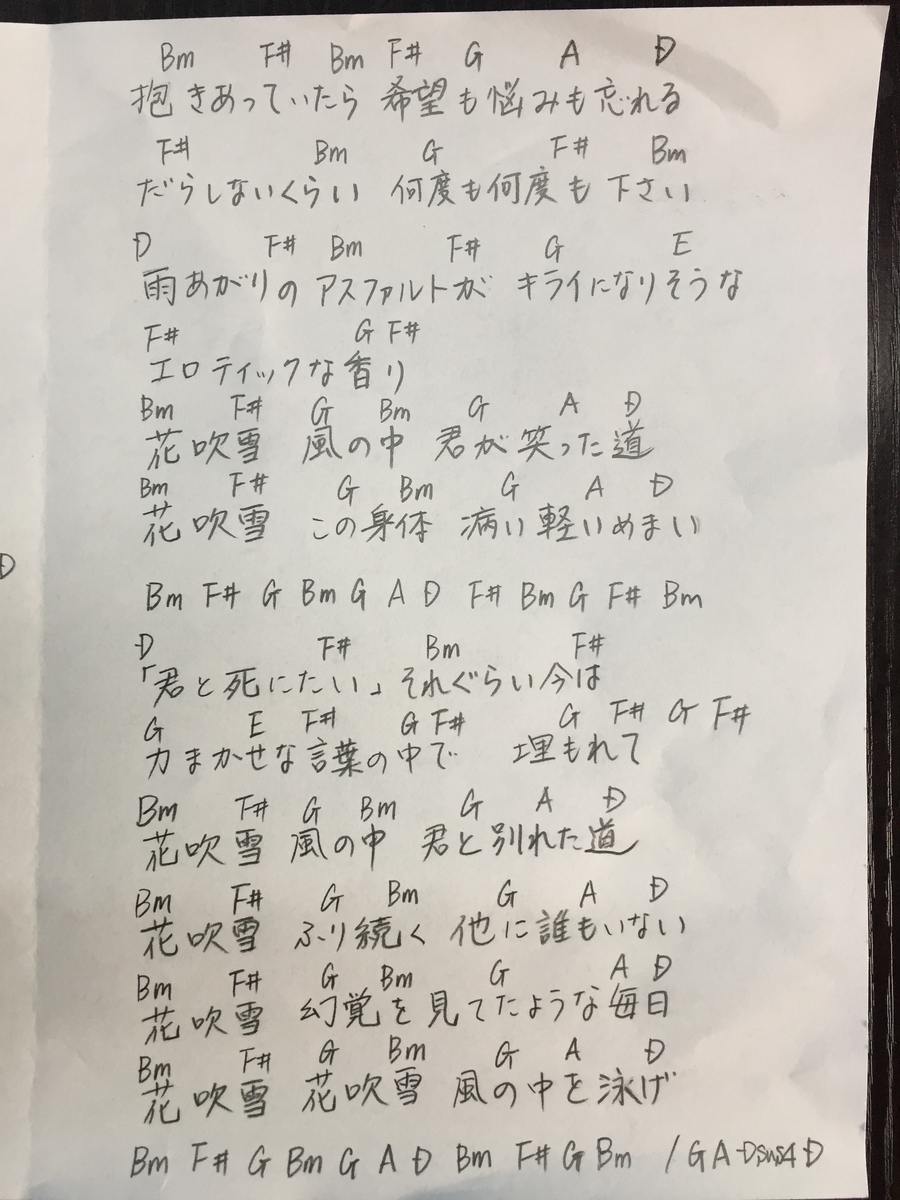 Bm F# Bm F# G A D
抱きあっていたら 希望も悩みも忘れる
F# Bm G F# Bm
だらしないくらい 何度も何度も下さい
D F# Bm F# G E
雨あがりの アスファルトが キライになりそうな
F# G F#
エロティックな香り
Bm F# G Bm G A D
花吹雪 風の中 君が笑った道
Bm F# G Bm G A D
花吹雪 この身体 病い軽いめまい
D
Bm F# G Bm G A D F# Bm G F# Bm
D F# Bm F#
「君と死にたい」それぐらい今は
G E F# G F# G F# G F#
力まかせな言葉の中で 埋もれて
Bm F# G Bm G A D
花吹雪 風の中 君と別れた道
Bm F# G Bm G A D
花吹雪 ふり続く 他に誰もいない
Bm F# G Bm G A D
花吹雪 幻覚を見てたような毎日
Bm F# G Bm G A D
花吹雪 花吹雪 風の中を泳げ
Bm F# G Bm G A D Bm F# G Bm / G A Dsus4 D